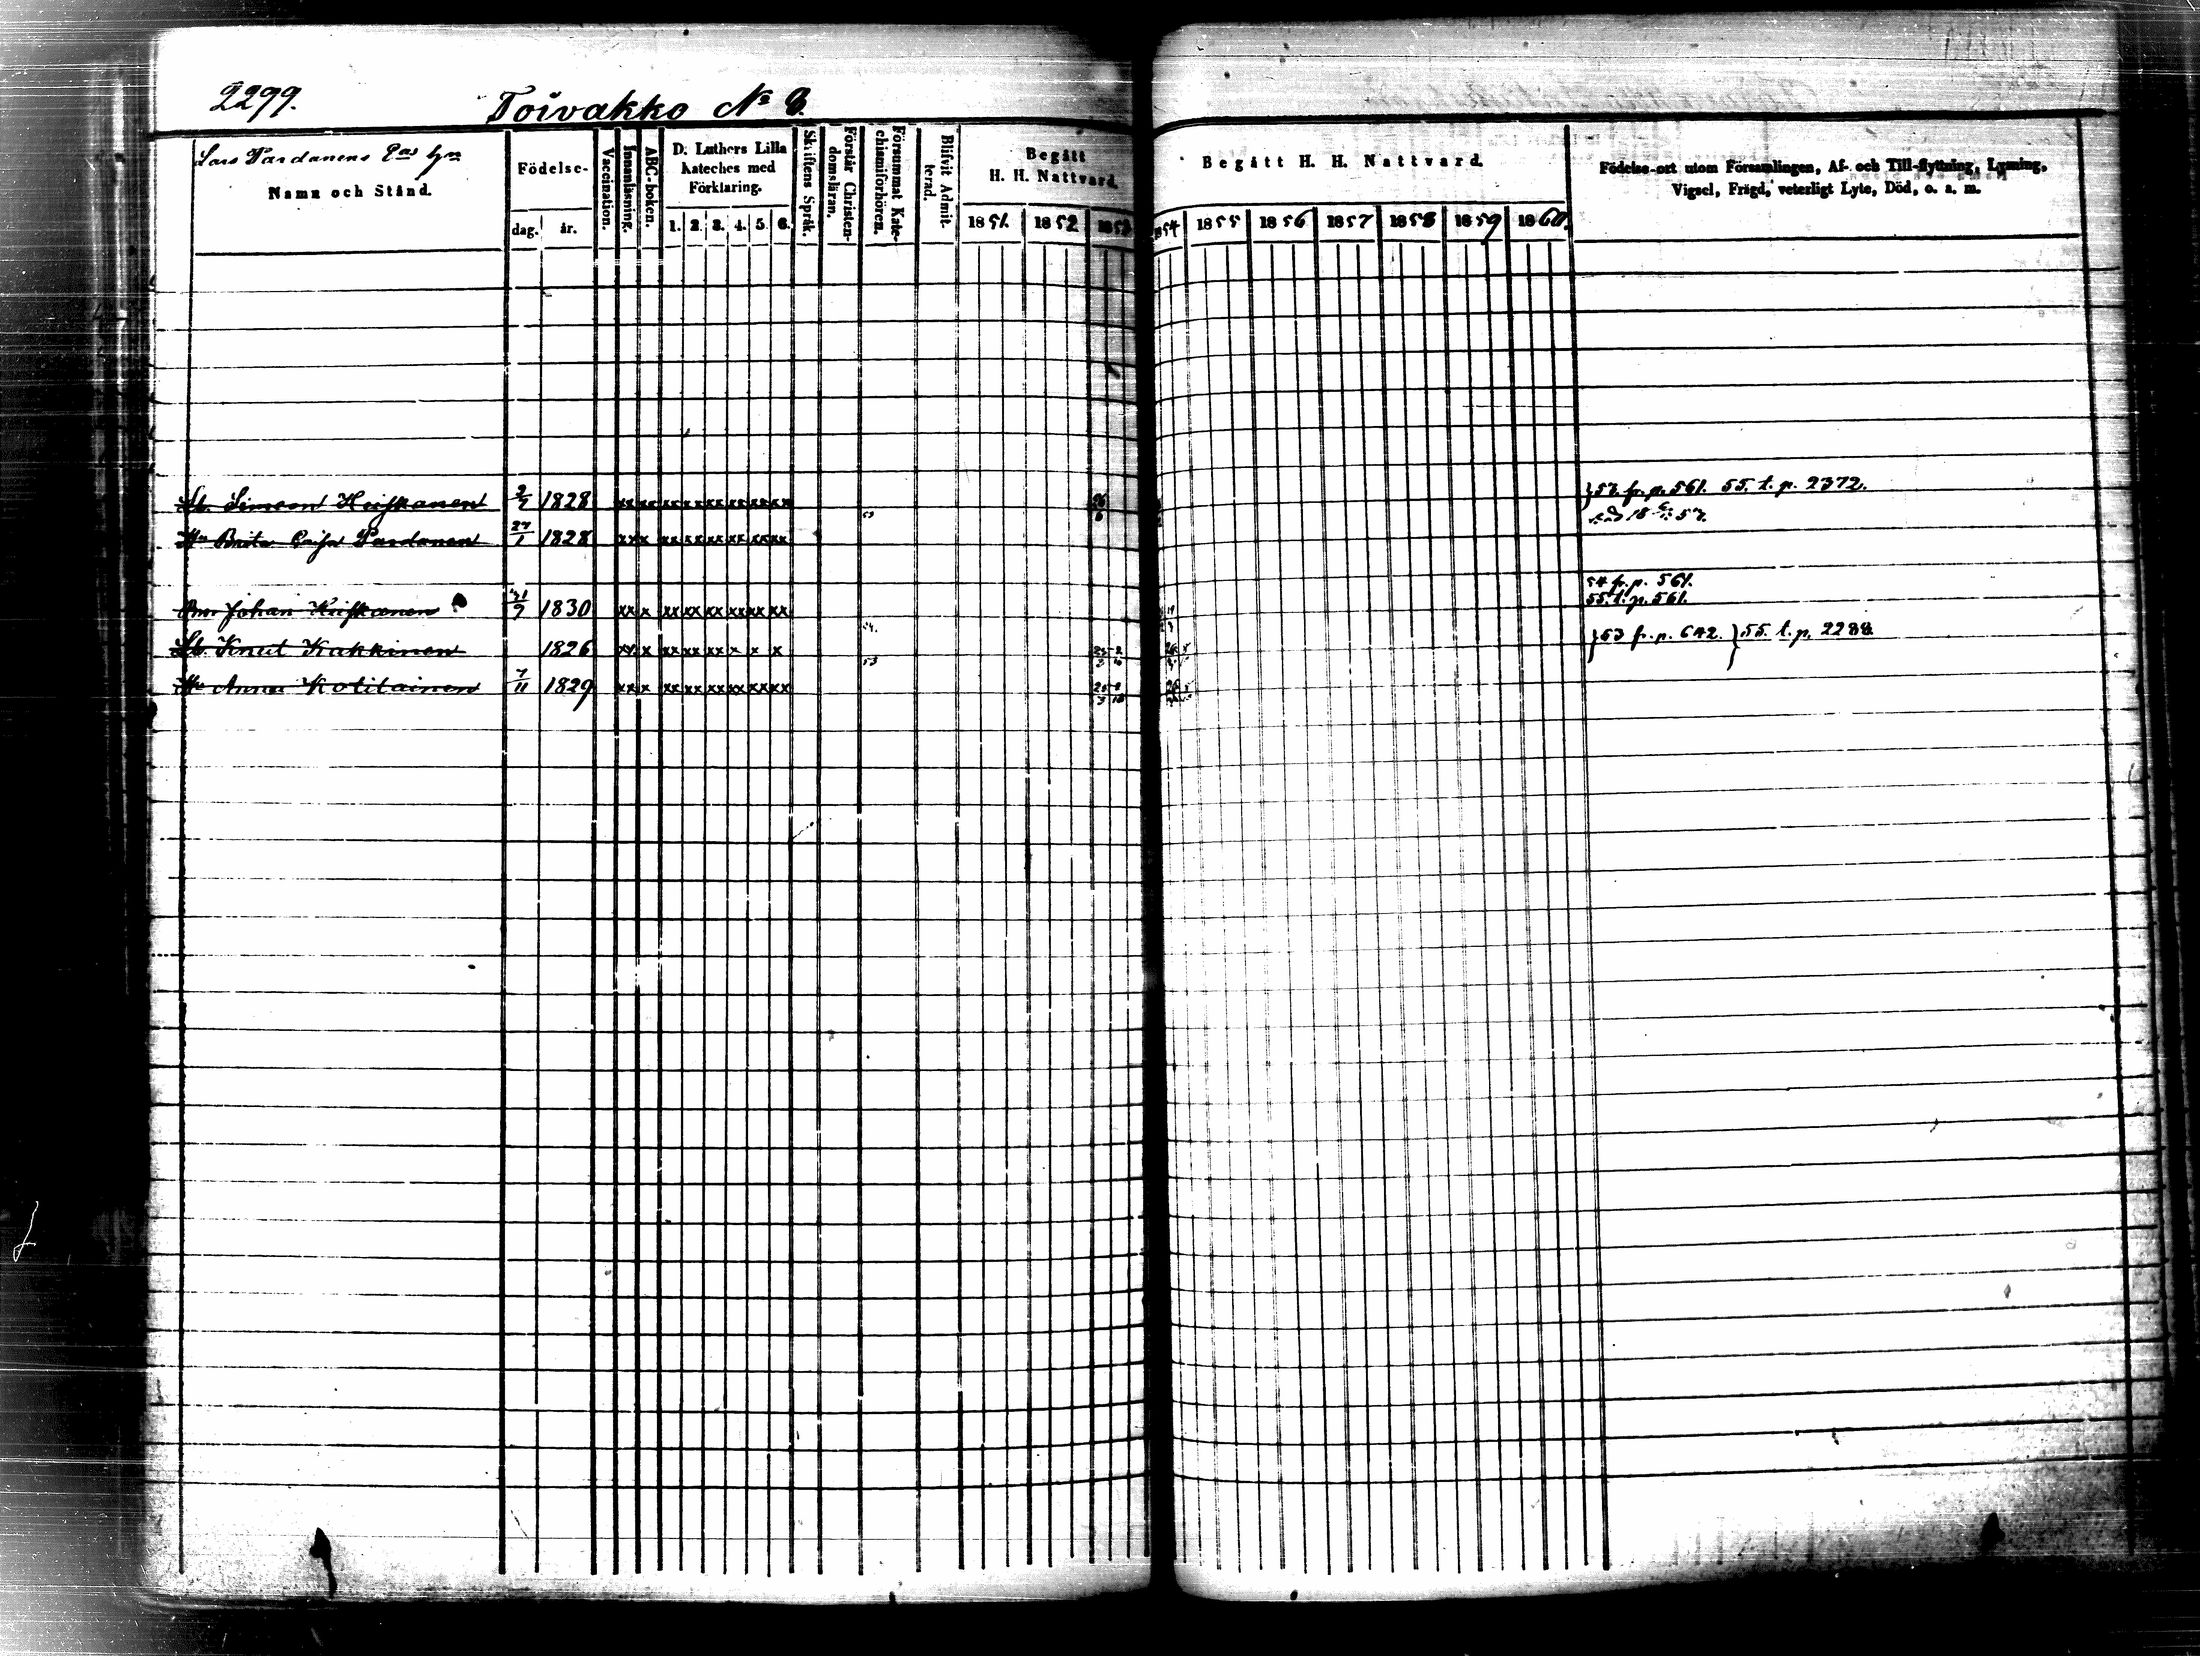 2299.
Toivakko № 8.
Lars Pardanens
Namn och Stånd.
Födelse-
dag. år.
Vaccination.
Innanläsning.
ABC-boken.
D. Luthers Lilla kateches med Förklaring.
1. 2. 3. 4. 5. 6.
Skriftens Språk.
Förstår Christendomsläran.
Försummat Katechismiförhören.
Blifvit Admitterad.
Begått H. H. Nattvard.
1851. 1852 1853
Begått H. H. Nattvard.
1854 1855 1856 1857 1858 1859 1860.
Födelse-ort utom Församlingen, Af- och Till-flyttning, Lysning,
Vigsel, Frägd, veterligt Lyte, Död, o. a. m.
St. Simeon Huiskanen 2/7 1828 xx xx xx xx xx xx xx xx 26/6 } 53. fr. p. 561. 55. t. p. 2372.
53
Hu Brita Caisa Pardanen 27/1 1828 xx x xx xx xx xx xx xx
54 fr. p. 561.
Bror Johan Huiskanen 21/9 1830 xx x xx xx xx xx xx xx 55. t. p. 561.
54.
St. Knut Kakkinen 1826 xx x xx xx xx x x x } 53 fr. p. 642. } 55. t. p. 2288
53
Hu Anna Kotilainen 7/11 1829 xx x xx xx xx xx xx xx